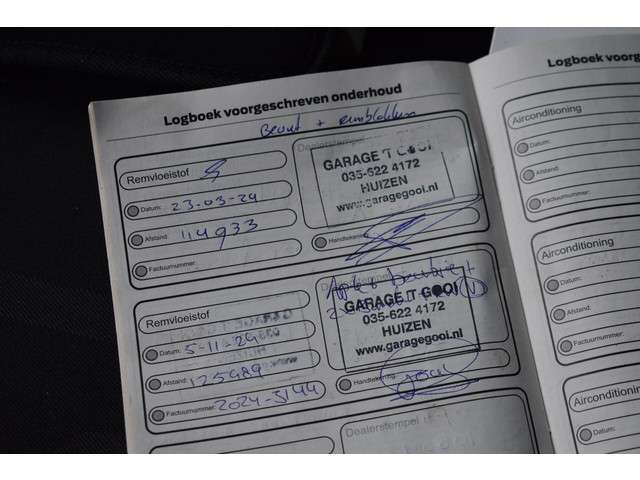 Logboek voorgeschreven onderhoud
Beurt + remblokken
Remvloeistof
Dealerstempel
GARAGE 'T GOOI
035-622 4172
HUIZEN
www.garagegooi.nl
Datum: 23-03-24
Afstand: 114933
Handtekening:
Factuurnummer:
Remvloeistof
Dealerstempel
GARAGE 'T GOOI
035-622 4172
HUIZEN
www.garagegooi.nl
Datum: 5-11-24
Afstand: 125989
Handtekening:
Factuurnummer: 2024-3144
Dealerstempel
Logboek voorg
Airconditioning
Datum:
Afstand:
Factuurnummer:
Airconditioning
Datum:
Afstand:
Factuurnummer:
Airconditioning
Datum: